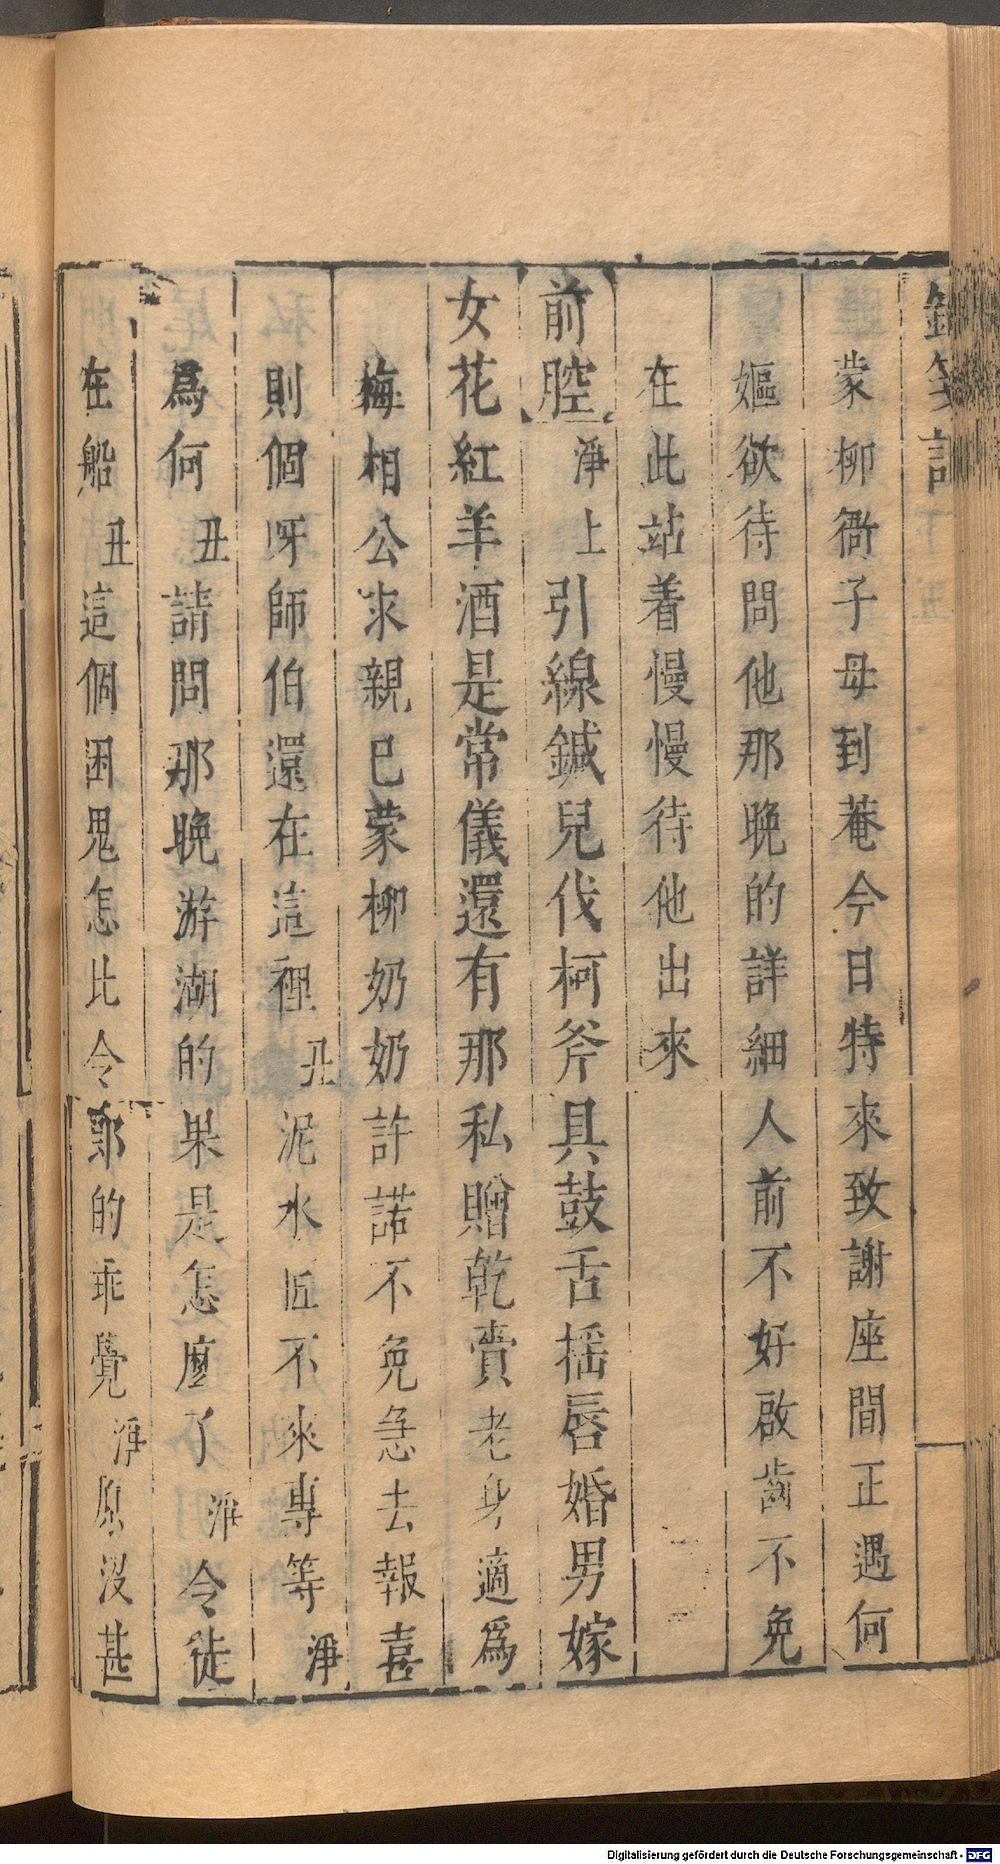 蒙柳衙子母到菴今日特來致謝座間正遇何
嫗欲待問他那晚的詳細人前不好啟齒不免
在此站着慢慢待他出來
前腔淨上引線鍼兒伐柯斧具鼓舌摇唇婚男嫁
女花紅羊酒是常儀還有那私贈乾賣老身適爲
梅相公求親已蒙柳奶奶許諾不免急去報喜
則個呀師伯還在這裡丑泥水匠不來專等淨
爲何丑請問那晚游湖的果是怎麼了淨令徒
在船丑這個困鬼怎比令郭的乖覺淨原没甚
Digitalisierung gefördert durch die Deutsche Forschungsgemeinschaft - DFG